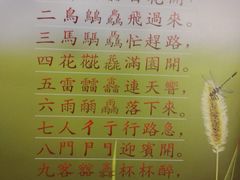 二 鳥 飛過來。
三 馬 驫 忙趕路，
四 花 滿園開。
五 雷 靐 連天響，
六 雨 落下來。
七 人 彳 亍 行路急，
八 門 迎賓開。
九 客 杯杯醉，